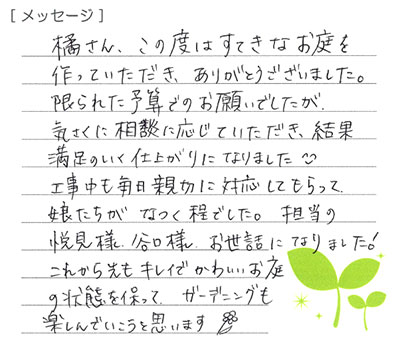 [メッセージ]
橘さん、この度はすてきなお庭を
作っていただき、ありがとうございました。
限られた予算でのお願いでしたが、
気さくに相談に応じていただき、結果
満足のいく仕上がりになりました
工事中も毎日親切に対応してもらって、
娘たちがなつく程でした。担当の
悦見様、谷口様、お世話になりました!
これから先もキレイでかわいいお庭
の状態を保って、ガーデニングも
楽しんでいこうと思います